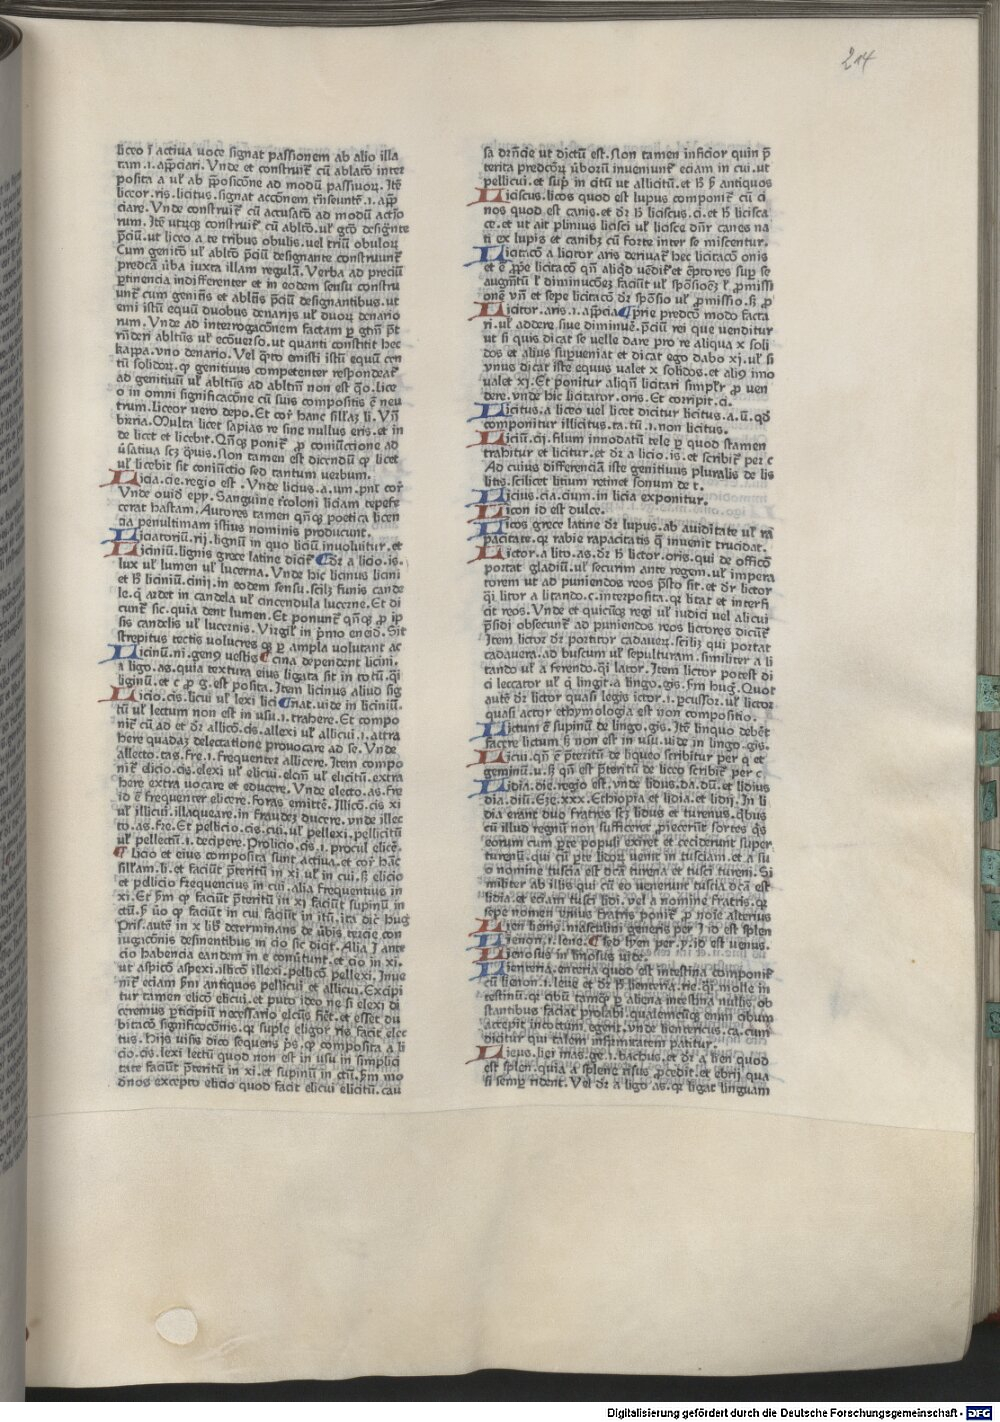 214
liceo ī actiua uoce signat passionem ab alio illa
tam.i.app̄ciari. Vnde et construit᷑ cū ablatō inter
posita a uł ab p̄posicōne ad modū passiuoꝝ. Itē
liceor.ris.licitus.signat acconem
ciare. Vnde construit᷑ cū accusatō ad modū actio
rum. Itē
p̄ciū.ut liceo a te tribus obulis.uel triū obuloꝝ
Cum genitō uł ablatō p̄ciū designante construunt᷑
predcā ūba iuxta illam regulā. Verba ad preciū
ꝑtinencia indifferenter et in eodem sensu constru
unt᷑ cum
emi istū equū duobus denarijs uł duoꝝ denario
rum. Vnde ad interrogacōnem factam ꝑ
ut quanti constitit hec
kappa.vno denario. Vel emisti istū equū cen
tū solidoꝝ. genitiuus competenter respondeat᷑
ad genitiuū uł non est lice
o in omni significacōne cū suis compositis ē neu
trum. liceor uero depo. Et cor᷑ hanc sillaꝫ li. Vn̄
Multa licet sapias re sine nullus eris. et in
de licet et licebit. ponit᷑ ꝓ coniūctione ad
ūsatiua Non tamen est dicendū licet
uł licebit sit coniūctio sed tantum uerbum.
Licia.cie.regio est. Vnde licius.a.um.
Vnde ouid epy. Sanguine liciam tepefe
cerat hastam. Autores tamen poetica licen
cia penultimam istius nominis producunt.
Liciatoriū.rij.lignū in quo liciū inuoluitur. et
Liciniū.lignis grece latine dicit᷑ ¶dr̄ a licio.is.
lux uł lumen uł lucerna. Vnde hic licinus licini
et liciniū.cinij.in eodem sensu. funis cande
le.q̄ ardet in candela uł cincendula lucerne. Et di
cunt᷑ sic.quia dent lumen. Et ponunt᷑ ꝓ ip
sis candelis uł lucernis. Virgił in p̄mo eneid. Sit
strepitus tectis uolucres ꝑ ampla uolutant ac
Licinū.ni.genꝰ uestis ¶cina dependent licini.
a ligo.as.quia textura eius ligata sit in totū.
liginū. et c ꝓ g.est posita. Item licinus aliud sig
Licio.cis.licui uł lexi lici ¶nat.uide in liciniū.
tū uł lectum non est in usu.i.trahere. Et compo
nit᷑ cū ad et dr̄ alliciō.cis.allexi uł allicui.i.attra
here quadaꝫ delectatione prouocare ad se. Vnde
allecto.tas.fre.i.frequenter allicere. Item compo
nit᷑ elicio.cis.elexi uł elicui.elcm̄ uł elicitū.extra
here extra uocare et educere. Vnde electo.as.fre
id ē frequenter elicere. foras emittē. Illiciō.cis xi
uł illicui.illaqueare.in fraudeꝫ ducere. vnde illec
to.as.fre. Et pellicio.cis.cui.uł pellexi.pellicitū
uł pellectū.i.decipere. Prolicio.cis.i.procul elicē.
¶ Licio et eius composita sunt actiua. et cor᷑ hāc
sillam.li. et faciūt p̄teritū in xi uł in cui. elicio
et pellicio frequencius in cui. alia frequentius in
xi. Et faciūt p̄teritū in xi faciūt supinū in
ctū. faciūt in cui faciūt in itū. ita dic̄ huḡ
Pris. autē in x lib̄ determinans de ūbis tercie con
iugicōnis desinentibus in cio sic dicit. Alia ī ante
cio habencia eandem in e et cio in xi.
ut aspiciō aspexi.illiciō illexi.pelliciō pellexi. Inue
nit᷑ eciam antiquos pellicui et allicui. Excipi
tur tamen eliciō elicui. et puto ideo ne si elexi di
ceremus necessario et esset du
bitacō significocōnis. suple eligor rīs facit elec
tus. Hijs uisis dico sequens composita a li
cio.cis.lexi lectū quod non est in usu in simplici
tate faciūt p̄teritū in xi. et supinū in ctū. mo
dnos excepto elicio quod facit elicui elicitū. cau
sa ut dictū est. Non tamen inficior quin p̄
terita predcōꝝ inueniunt᷑ eciam in cui. ut
pellicui. et in citū ut allicitū. et antiquos
Liciscus.licos quod est lupus componit᷑ cū ci
nos quod est canis. et dr̄ liciscus.ci. et licisca
ce. et ut ait plinius licisci uł licisce dn̄r canes na
ti ex lupis et canibꝫ cū forte inter se miscentur.
Licitacō a licitor aris deriuat᷑ hec licitacō onis
et ē ꝓꝑe licitacō et se
augm̄tū ł faciūt uł ł ꝓmissi
onē et sepe licitacō dr̄ uł ꝓmissio.
Licitor.aris.i.app̄cia ¶prie predcō modo facta
ri.uł addere siue p̄ciū rei que uenditur
ut si quis dicat se uelle dare pro re aliqua x soli
dos et alius supueniat et dicat ego dabo xj. uł si
vnus dicat iste equus ualet x solidos. et aliꝰ imo
ualet xj. Et ponitur licitari ꝓ uen
dere. vnde hic licitator.oris. Et corripit.ci.
Licitus.a liceo uel licet dicitur licitus.a.ū.
componitur illicitus.ta.tū.i.non licitus.
Liciū.cij.filum innodatū tele ꝑ quod stamen
trahitur et licitur. et dr̄ a licio.is. et scribit᷑ per c
Ad cuius differenciā iste genitiuus pluralis de lis
litis.scilicet litium retinet sonum de t.
Licius.cia.cium.in licia exponitur.
Licon id est dulce.
Licos grece latine dr̄ lupus.ab auiditate uł ra
pacitate. rabie rapacitatis q̄ inuenit trucidat.
Lictor.a lito.as.dr̄ lictor.oris.qui de officō
portat gladiū.uł securim ante regem.uł impera
torem ut ad puniendos reos sit. et dr̄ lictor
litor a litando.c.interposita. litat et interfi
cit reos. Vnde et quicūꝗ regi uł iudici uel alicui
p̄sidi obsecunt᷑ ad puniendos reos lictores dicūt᷑
Item lictor dr̄ portitor cadaueꝝ. qui portat
cadauera.ad buscum uł sepulturam.similiter a li
tando uł a ferendo. lator. Item lictor potest di
ci leccator uł lingit.a lingo.gis. huḡ. Quot
autē dr̄ lictor quasi legis ictor.i.ꝑcussor.uł lictor
quasi actor ethymologia est non compositio.
Lictum ē supinū de lingo.gis. Itē linquo debēt
facere lictum non est in usu.uide in lingo.gis.
Licui. ē p̄teritū de liqueo scribitur per q et
geminū.u. est p̄teritū de liceo scribit᷑ per c
Lidia.die.regio est.vnde lidus.da.dū. et lidius
dia.diū. Eze.xxx. Ethiopia et lidia. et lidij. In li
dia erant duo fratres lidus et turenus.
cū illud regnū non sufficeret ꝓiecerūt sortes
eorum cum ꝑte populi exiret et ceciderunt super
turenū.qui cū ꝑte licoꝝ uenit in tusciam. et a su
o nomine tuscia est dcā turenia et tusci tureni. Si
militer ab illis qui cū eo uenerunt tuscia dcā est
lidia. et eciam tusci lidi. vel a nomine fratris.
sepe nomen vnius fratris ponit᷑ ꝓ noīe alterius
Lien lienis.masculini generis per i id est splen
Lienon.i.lene. ¶sed lyen per.y.id est uenus.
Lienosus in limosus uide.
Lienteria.enteria quod est intestina componit᷑
cū lienon.i.leue et dr̄ lienteria.rie. molle in
testinū. cibū ꝑ aliena intestina nullis ob
stantibus faciat prolabi.qualemcūꝗ enim cibum
accepit incoctum egerit.vnde lientericus.ca.cum
dicitur qui talem infirmitatem patitur.
Lieus.liei mas.ge.i.bachus. et dr̄ a lien quod
est splen.quia a splene risus ꝓcedit. et ebrij qua
si semꝑ rident. Vel dr̄ a ligo as. ligat linguam
Digitalisierung gefördert durch die Deutsche Forschungsgemeinschaft - DFG